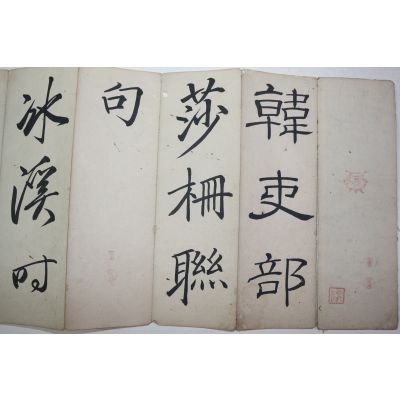 韓吏部
莎柵聯
句
冰溪时